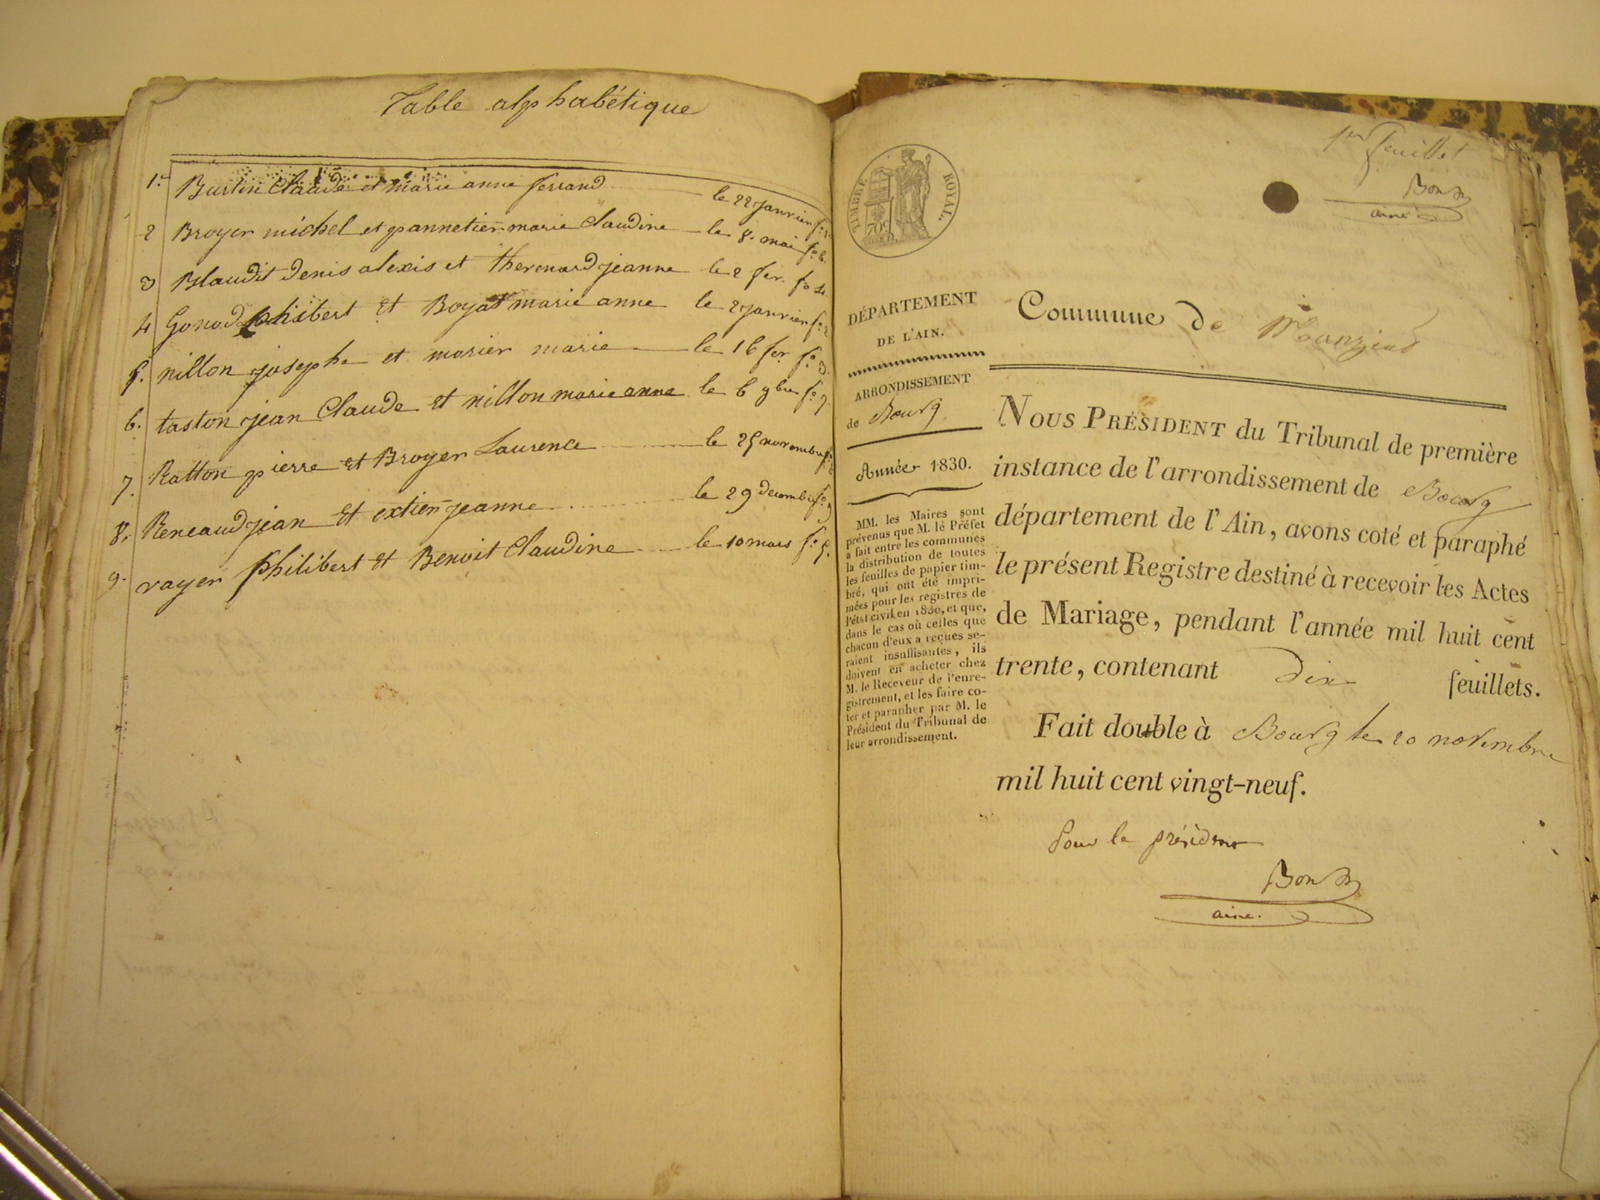 Table alphabétique
1. Burtin Claude et marie anne ferrand le 22 janvier fo
2 Broyer michel et pannetier marie Claudine le 8. mai fo 6
3 Blaudit denis alexis et thevenard jeanne le 2 fer. fo 4
4 Gonod philibert et Boyat marie anne le 2 janvier fo 2
5. nillon josephe et morier marie le 16 fer fo 3
6. taston jean Claude et nillon marie anne le 6 9bre fo 7
7. Ratton pierre et Broyer Laurence le 25 novembre
8. Reneaud jean et extier jeanne le 29 decembre fo 9
9. vayer philibert et Benoit Claudine le 10 mars fo 5
1er feuillet
Bon
ainé
TIMBRE ROYAL.
DÉPARTEMENT
DE L'AIN.
ARRONDISSEMENT
de Bourg
Année 1830.
MM. les Maires sont
prévenus que M. le Préfet
a fait entre les communes
la distribution de toutes
les feuilles de papier tim-
bré, qui ont été impri-
mées pour les registres de
l'état civil en 1830, et que,
dans le cas où celles que
chacun d'eux a reçues se-
raient insuffisantes, ils
doivent en acheter chez
M. le Receveur de l'enre-
gistrement, et les faire co-
ter et parapher par M. le
Président du Tribunal de
leur arrondissement.
Commune de Manziat
NOUS PRÉSIDENT du Tribunal de première
instance de l'arrondissement de Bourg
département de l'Ain, avons coté et paraphé
le présent Registre destiné à recevoir les Actes
de Mariage, pendant l'année mil huit cent
trente, contenant dix feuillets.
Fait double à Bourg le 20 novembre
mil huit cent vingt-neuf.
Pour le président
Bon
aine.